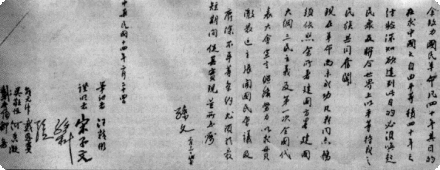 余致力國民革命凡四十年其目的
在求中國之自由平等積四十年之
經驗深知欲達到此目的必須喚起
民衆及聯合世界上以平等待我之
民族共同奮鬥
現在革命尚未成功凡我同志務
須依照余所著建國方略建國
大綱三民主義及第一次全國代
表大會宣言繼續努力以求貫
徹最近主張開國民會議及
廢除不平等條約尤須於最
短期間促其實現是所至囑
孫文
中華民國十四年二月二十四日
筆記者 汪精衛
證明者 宋子文
孫科
戴恩賽
吳敬恆 何香凝